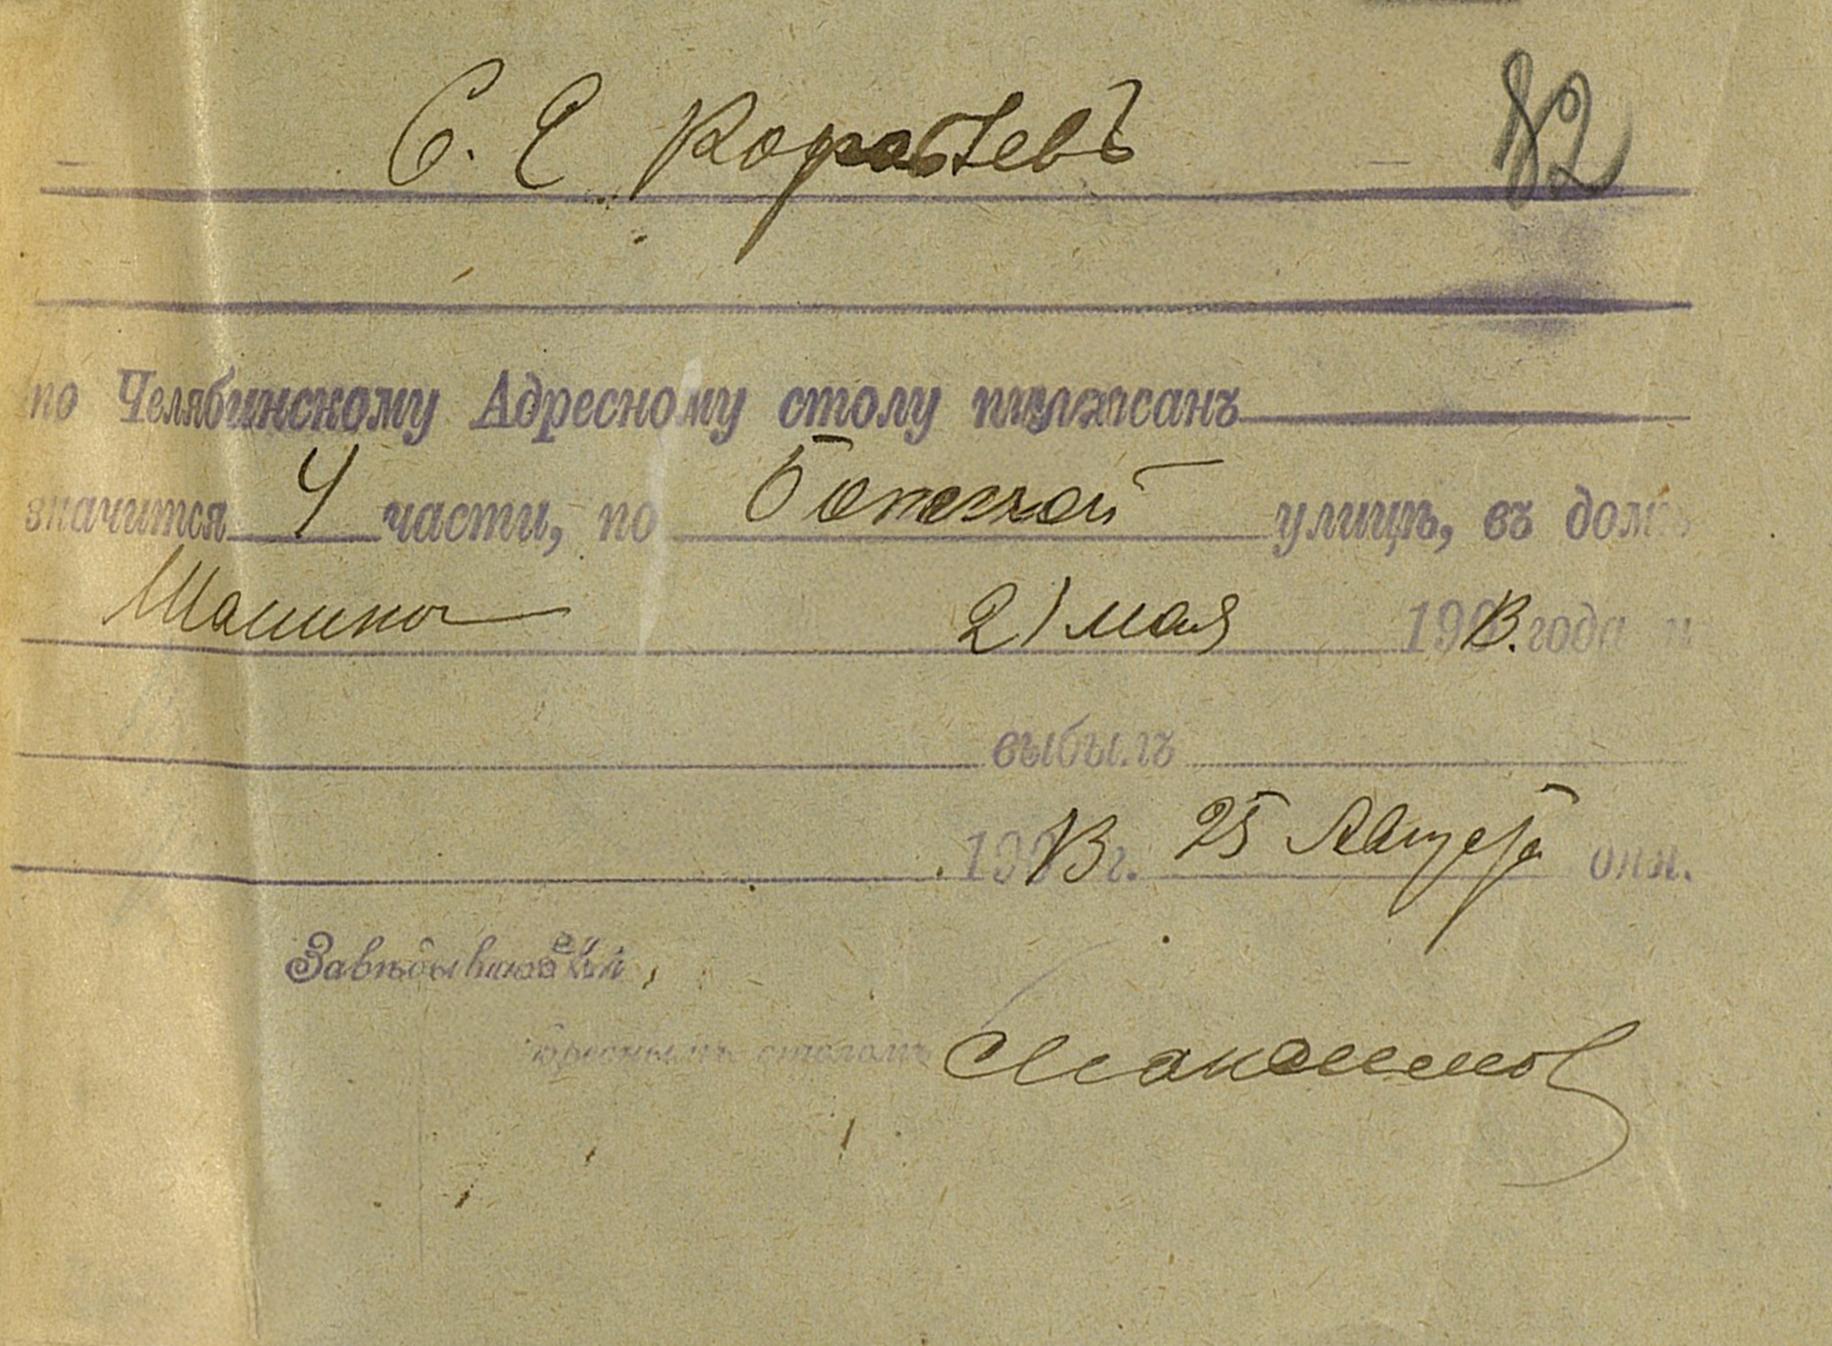 С. Е Коробьевъ 82
по Челябинскому Адресному столу прописанъ
значится 4 части, по улицѣ, въ домѣ
Шашина 21 мая 1913. года и
выбылъ
1913 г. 25 Августа дня.
Завѣдывающій
Адреснымъ столомъ Максимов